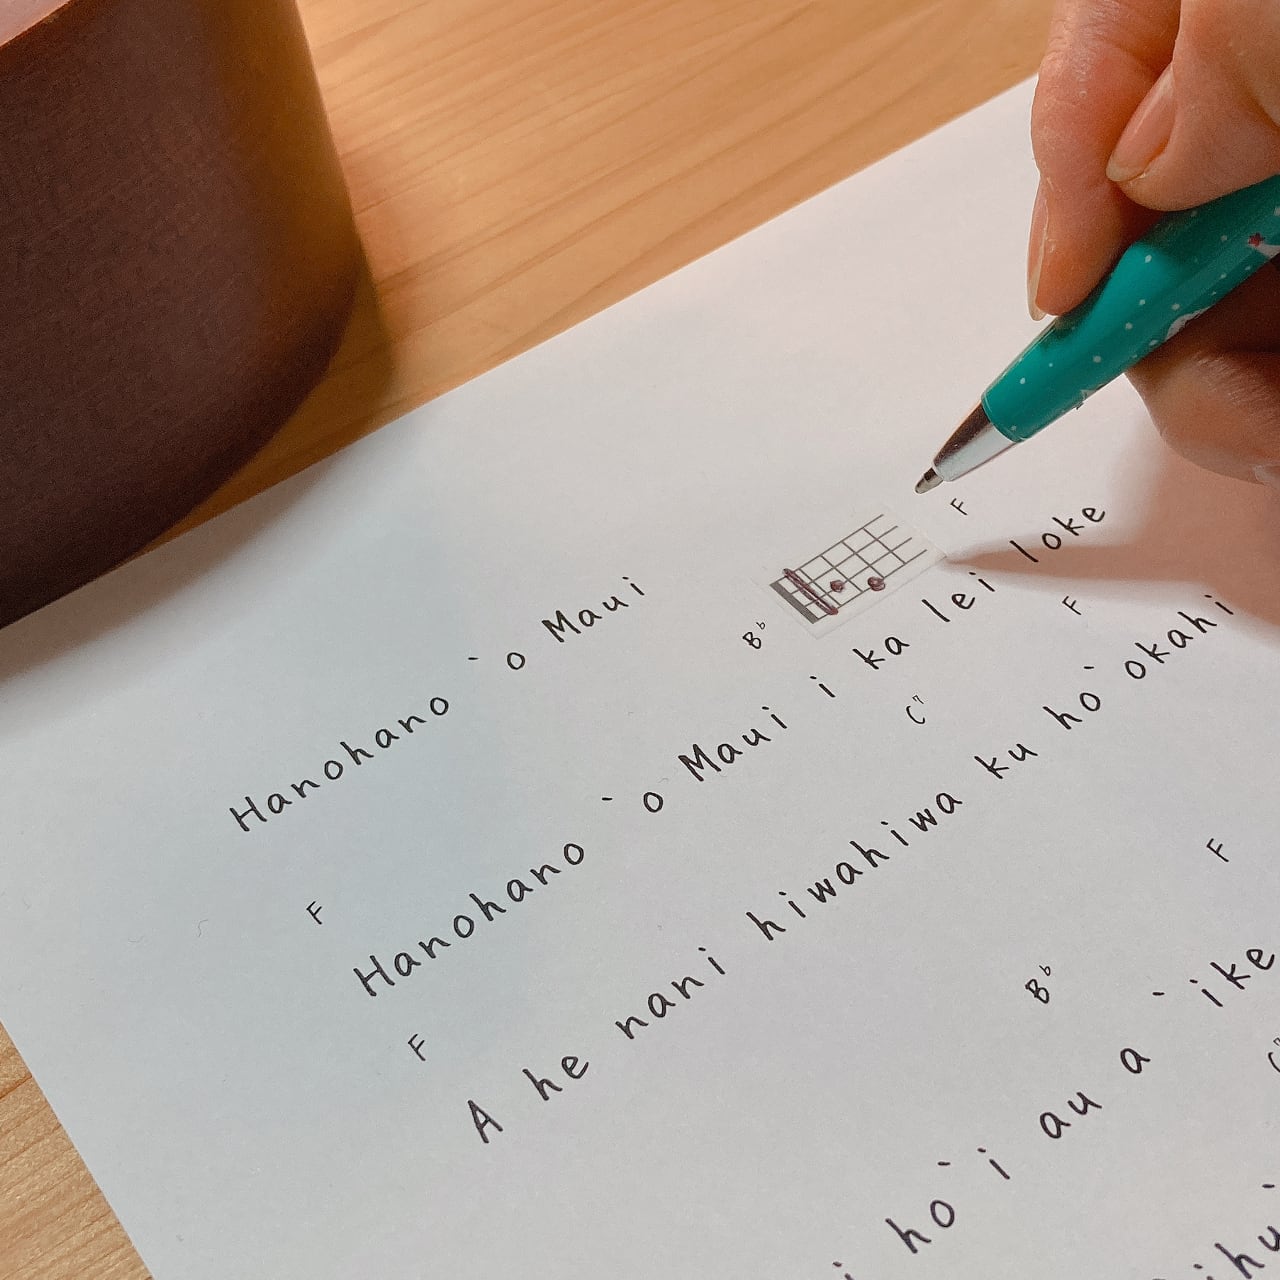 Hanohano `o Maui
B♭ F
Hanohano `o Maui i ka lei loke
F C7 F
A he nani hiwahiwa ku ho`okahi
F
B♭ F
ho`i au a `ike